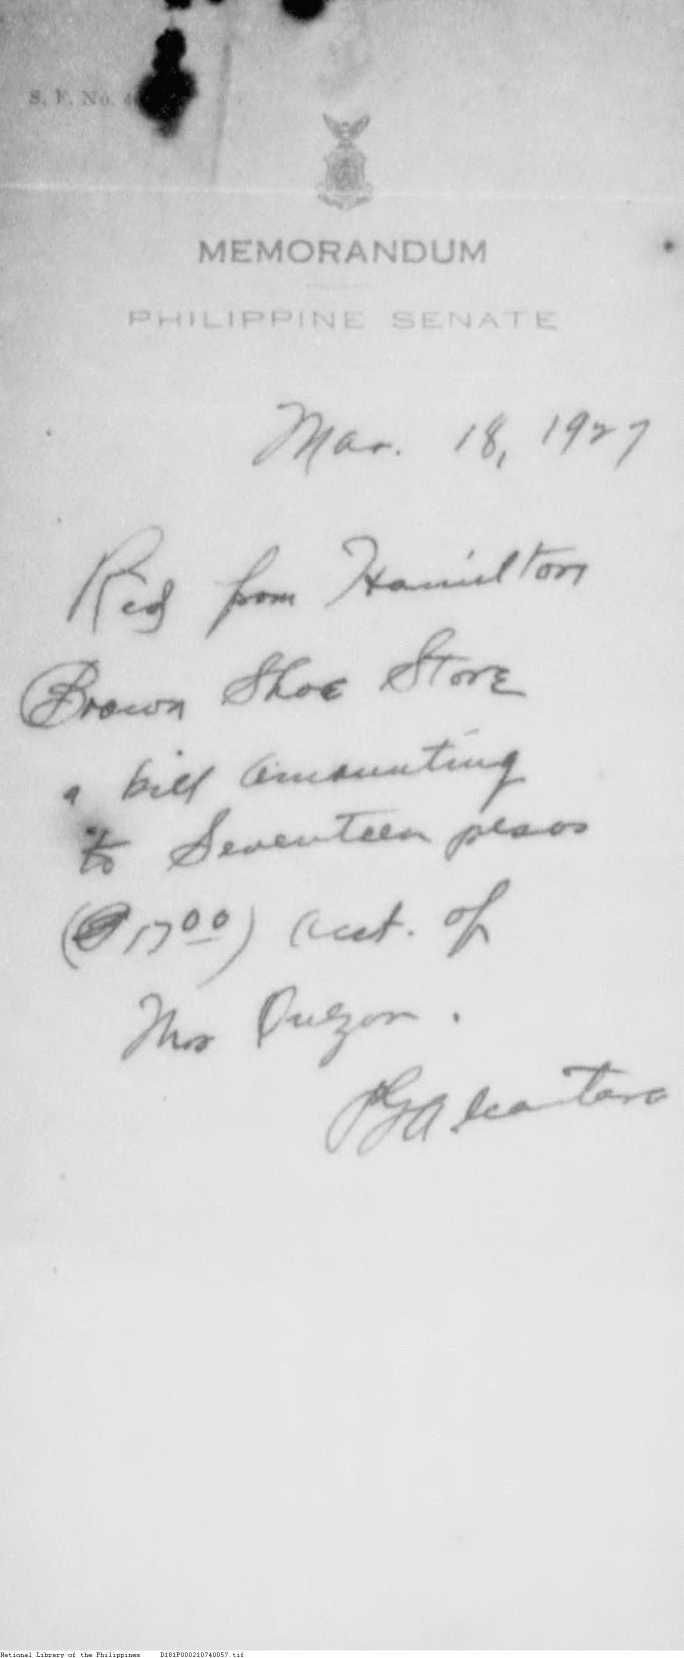 S. F. No. 4
MEMORANDUM
PHILIPPINE SENATE
Mar. 18, 1927
Rec'd from Hamilton
Brown Shoe Store
a bill amounting
to Seventeen pesos
(₱17.00) acct. of
Mrs Quezon.
PGAlcantara
National Library of the Philippines D181P000210740057.tif